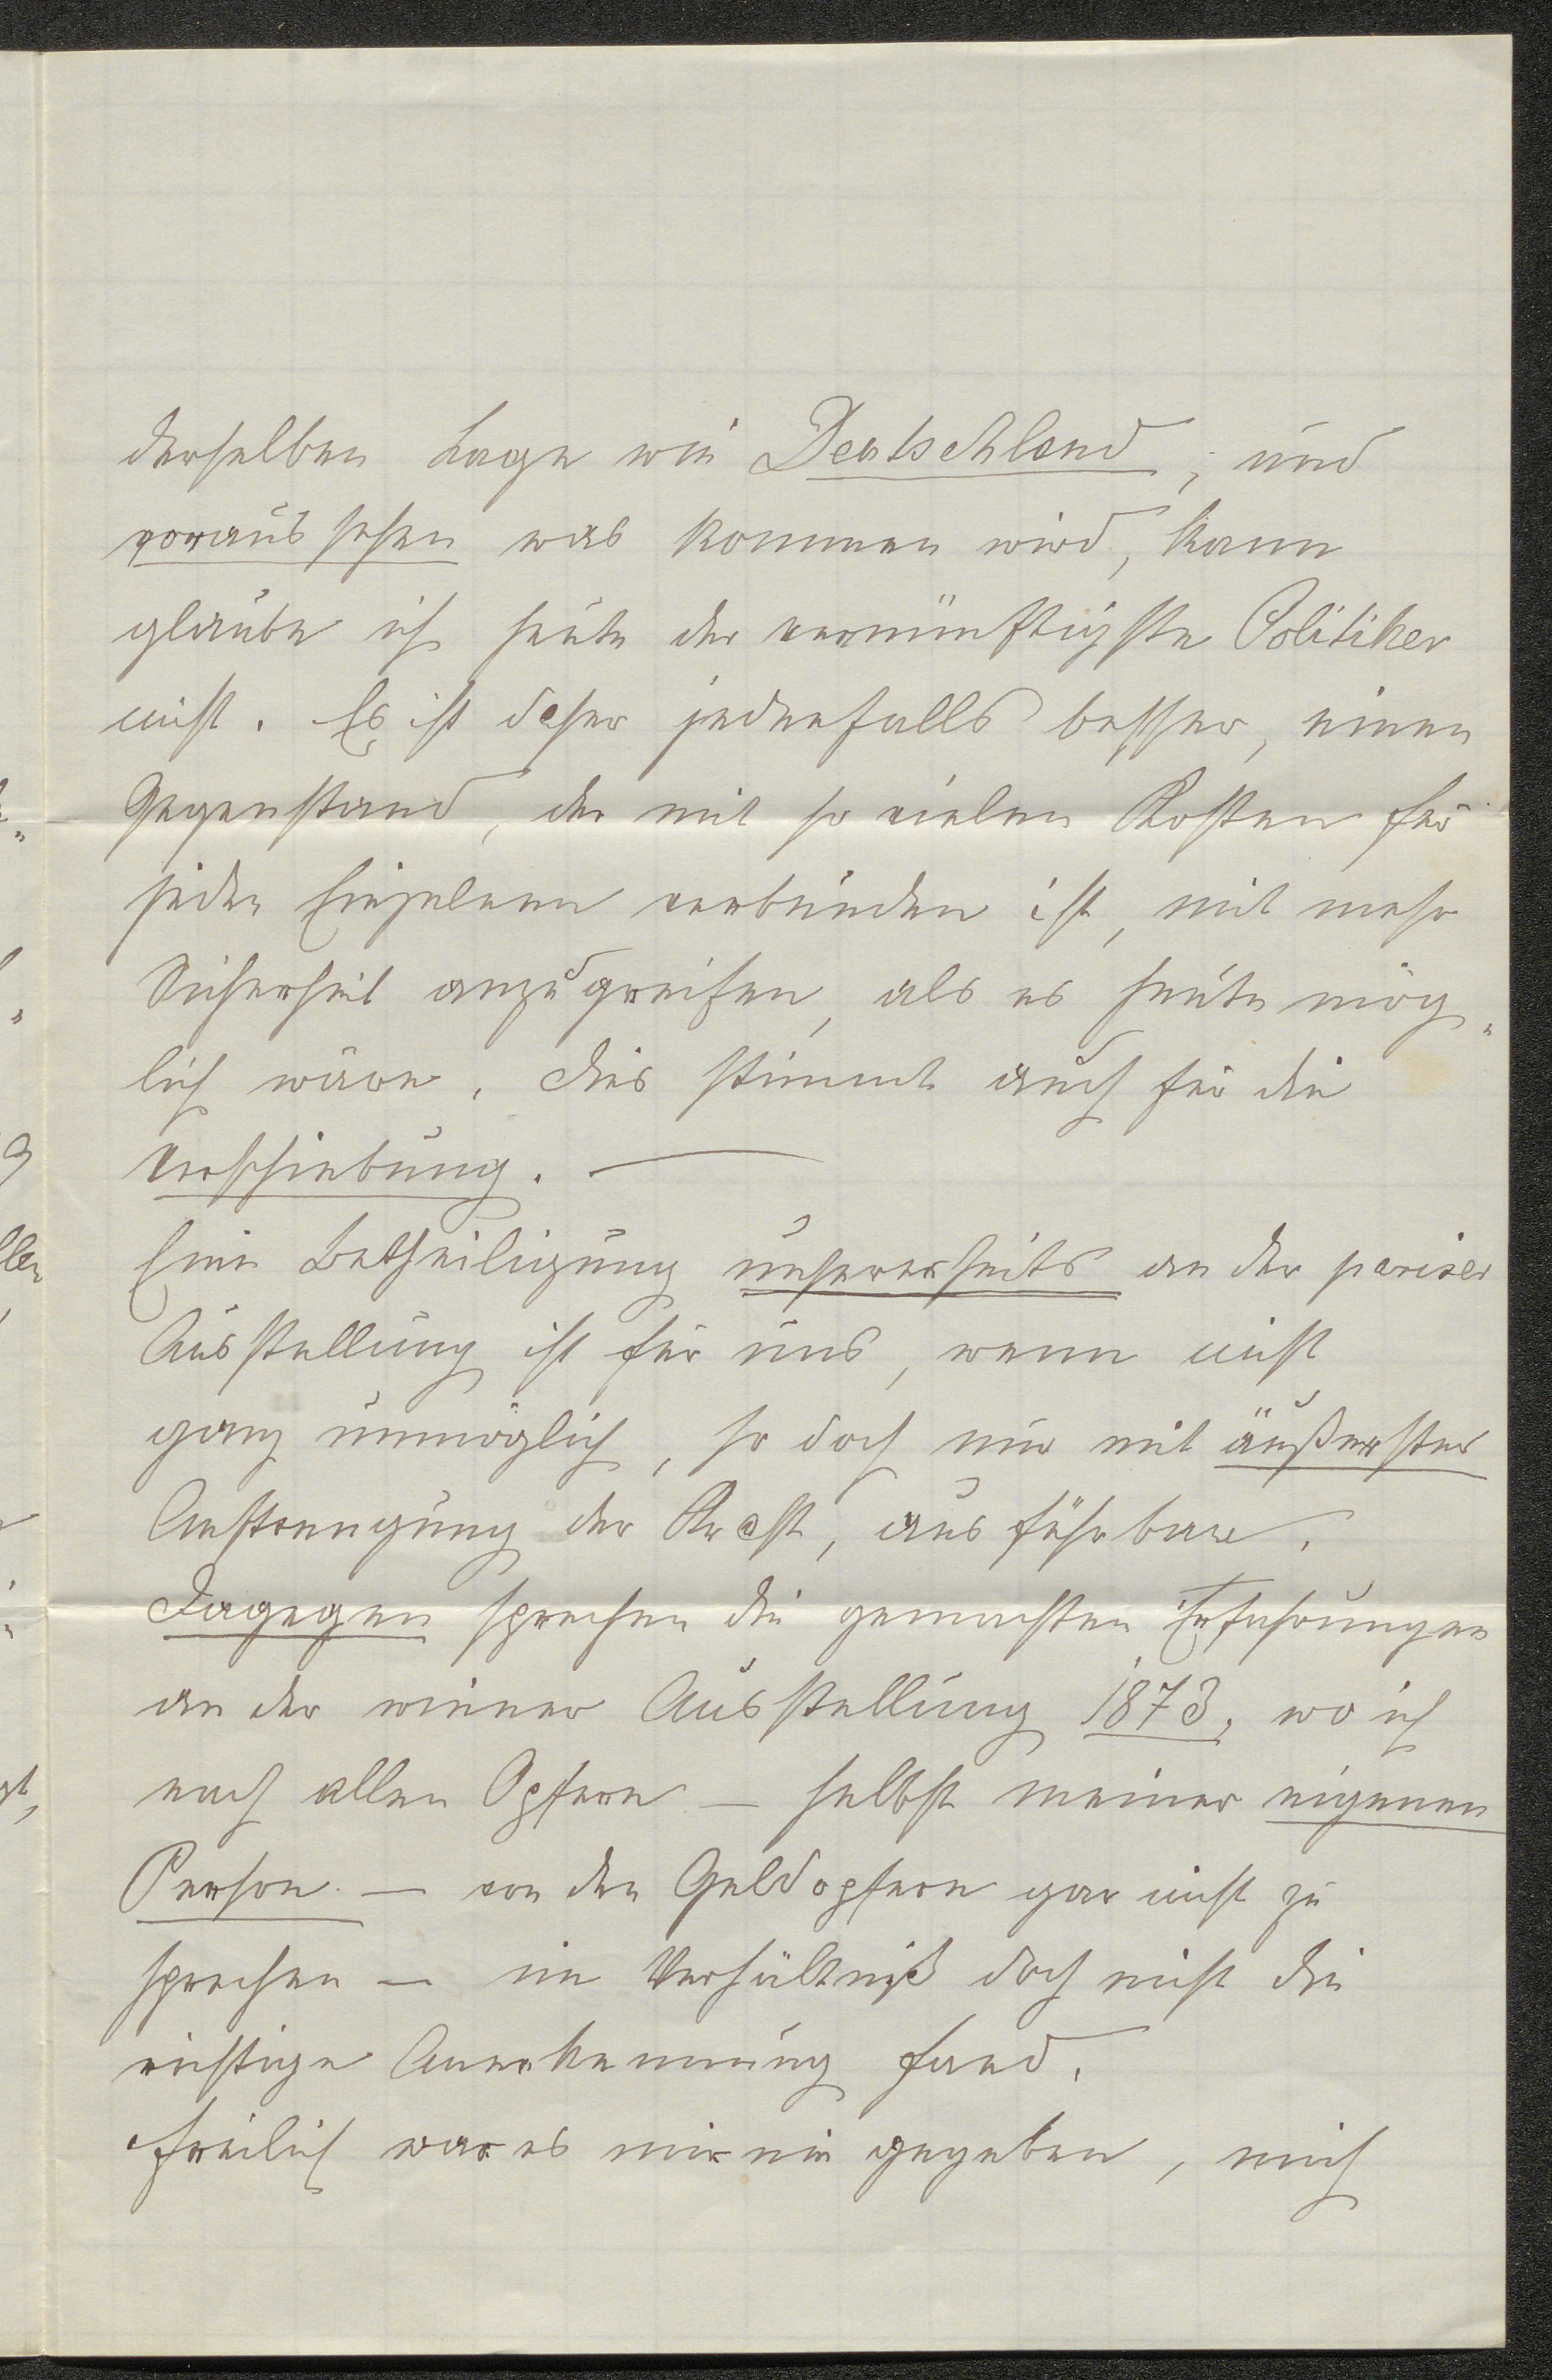 derselben Lage wie Deutschland; und
voraus sehen was kommen wird, kann
glaube ich heute der vernünftigste Politiker
nicht. Es ist daher jedenfalls besser, einen
Gegenstand, der mit so vielen Kosten für
jeden Einzelnen verbunden ist, mit mehr
Sicherheit anzugreifen, als es heute mög„
lich wäre. Dies stimmt auch für die
Verschiebung. —
Eine Betheiligung unsererseits an der pariser
Ausstellung ist für uns, wenn nicht
ganz unmöglich, so doch nur mit äußerster
Anstrengung der Kraft, ausführbar.
Dagegen sprechen die gemachten Erfahrungen
an der wiener Ausstellung 1873, wo ich
nach allen Opfern — selbst meiner eigenen
Person — von den Geldopfern gar nicht zu
sprechen — im Verhältniß doch nicht die
richtige Anerkennung fand.
Freilich war es mir nie gegeben, mich